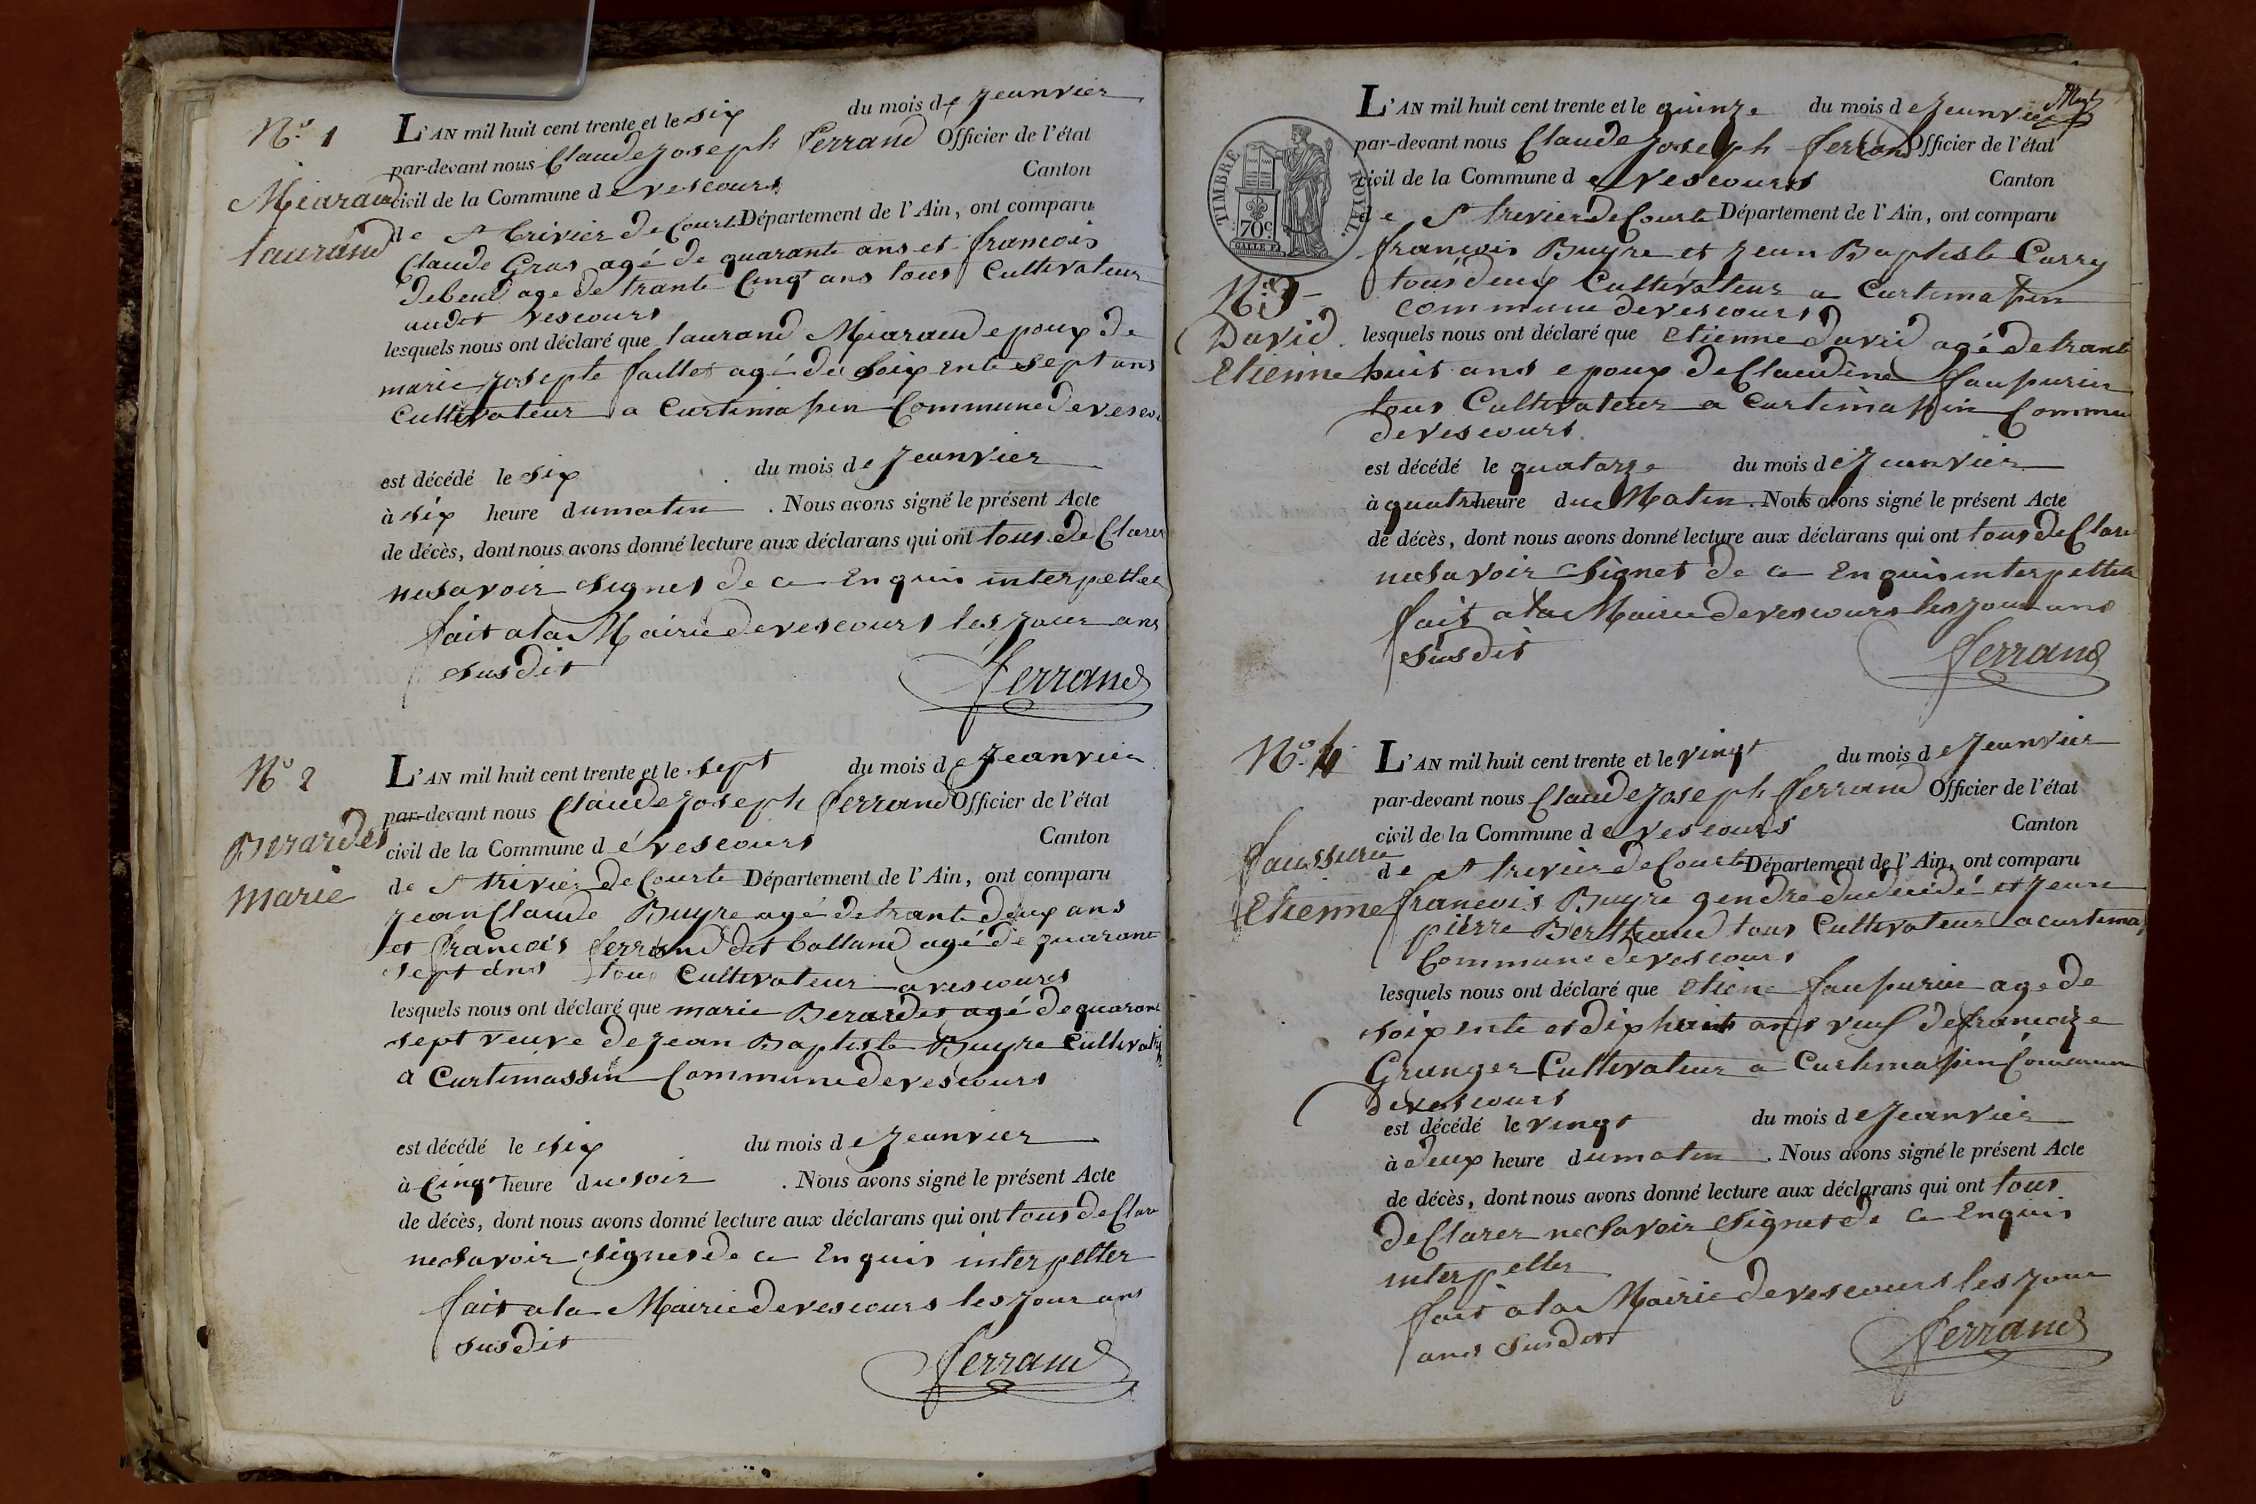 N.o 1
Miaraud
laurand
L'AN mil huit cent trente et le six du mois de Jeanvier
par-devant nous Claude Joseph Ferrand Officier de l'état
civil de la Commune de vescours Canton
de St trivier de Courte Département de l'Ain, ont comparu
Claude Gras agé de quarante ans et francois
debeuf age de trante Cinqt ans tous Cultivateur
audit vescours
lesquels nous ont déclaré que laurand Miaraud epoux de
marie Josepte faillet agé de Soixente sept ans
Cultivateur a Curtimassin Commune de vescou
est décédé le six du mois de Jeanvier
à six heure du matin . Nous avons signé le présent Acte
de décès, dont nous avons donné lecture aux déclarans qui ont tous de Clarer
ne savoir signer de ce Enquis interpetter
fait a la Mairie de vescours les Jour ans
susdit
Ferrand
N.o 2
Berardet
Marie
L'AN mil huit cent trente et le sept du mois de Jeanvier
par-devant nous Claude Joseph Ferrand Officier de l'état
civil de la Commune dé vescours Canton
de St trivier de Courte Département de l'Ain, ont comparu
Jean Claude Buyre agé de trante deux ans
et francois ferrand dit balland agé de quarant
sept ans tous Cultivateur a vescours
lesquels nous ont déclaré que marie Berardet agé de quarant
sept veuve de Jean Baptiste Buyre Cultivatr
a Curtimassin Commune de vescours
est décédé le six du mois de Jeanvier
à Cinqt heure du soir . Nous avons signé le présent Acte
de décès, dont nous avons donné lecture aux déclarans qui ont tous de Clare
ne savoir signer de ce Enquis interpetter
fait a la Mairie de vescours les Jour ans
susdit
Ferrand
TIMBRE ROYAL
70c.
N.o 3
David
Etienne
L'AN mil huit cent trente et le quinze du mois de Jeanvier
par-devant nous Claude Joseph ferrand Officier de l'état
civil de la Commune de vescours Canton
de St trevier de Courte Département de l'Ain, ont comparu
francois Buyre et Jean Baptiste Carry
tous deux Cultivateur a Curtimassin
commune de vescours
lesquels nous ont déclaré que etienne david agé de trante
huit ans epoux de Claudine faupurin
tous Cultivateur a Curtimassin Commu
de vescours
est décédé le quatorze du mois de Jeanvier
à quatre heure du Matin . Nous avons signé le présent Acte
de décès, dont nous avons donné lecture aux déclarans qui ont tous de Clare
ne savoir signer de ce Enquis interpetter
fait a la Mairie de vescours les Jour ans
susdit
Ferrand
N.o 4
faussurie
Etienne
L'AN mil huit cent trente et le vingt du mois de Jeanvier
par-devant nous Claude Joseph Ferrand Officier de l'état
civil de la Commune de vescours Canton
de St trevier de Courte Département de l'Ain, ont comparu
francois Buyre gendre du décidé et Jean
pierre Berthaud tous Cultivateur a curtimas
Commune de vescours
lesquels nous ont déclaré que etiene faupurin age de
soixente et dix huit ans veuf de francoize
Granger Cultivateur a Curtimassin Commun
de vescours
est décédé le vingt du mois de Jeanvier
à deux heure du matin . Nous avons signé le présent Acte
de décès, dont nous avons donné lecture aux déclarans qui ont tous
de Clarer ne Savoir Signer de ce Enquis
interpetter
fait a la Mairie de vescours les Jour
ans Susdit
Ferrand